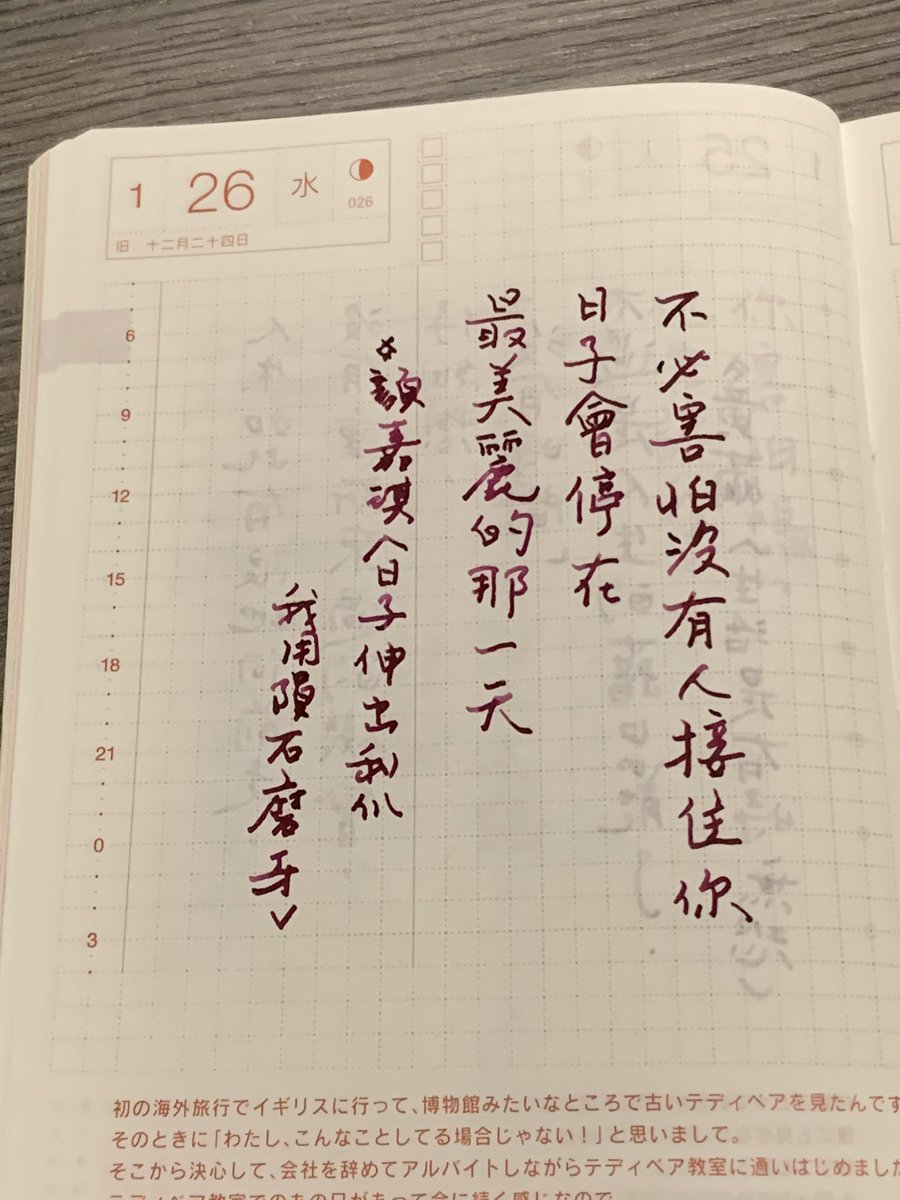 1 26 水
026
旧 十二月二十四日
不必害怕沒有人接住你
日子會停在
最美麗的那一天
☆顏嘉琪〈日子伸出我们
我用隕石磨牙〉
6
9
12
15
18
21
0
3
初の海外旅行でイギリスに行って、博物館みたいなところで古いテディベアを見たんです
そのときに「わたし、こんなことしてる場合じゃない!」と思いまして。
そこから決心して、会社を辞めてアルバイトしながらテディベア教室に通いはじめました